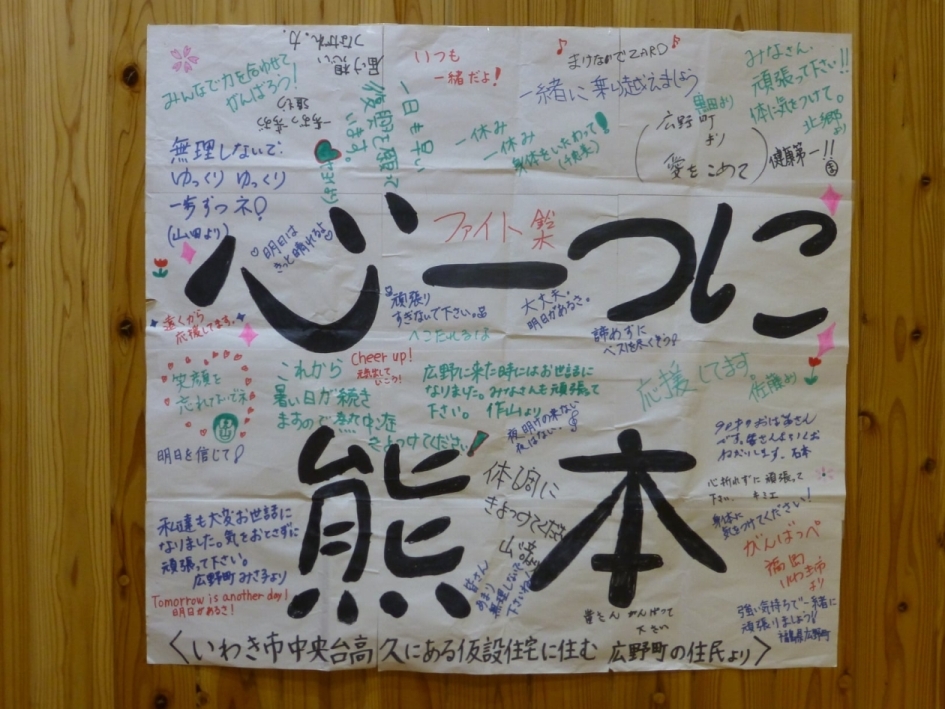 みんなで力を合わせて
がんばろう！
つながれ、力。
届け想い
一歩ずつ
一日も早い
復興を願って
います。
いつも
一緒だよ！
まけないでZARD
一緒に乗り越えましょう
黒田より
みなさん、
頑張って下さい!!
体に気をつけて。
北郷より
一休み
一休み
身体をいたわって！
(広野町より
愛をこめて)
健康第一!!
無理しないで
ゆっくり ゆっくり
一歩ずつネ！
(山田より)
心一つに
明日は
きっと晴れるよ
ファイト
頑張り
すぎないで下さい。
へこたれるな
大丈夫。
明日があるさ。
諦めずに
ベストを尽くそう！
遠くから
応援してます。
笑顔を
忘れないでネ
明日を信じて！
これから
暑い日が続き
ますので熱中症
きよつけてください！
Cheer up!
元気出して
いこう！
広野に来た時にはお世話に
なりました。みなさんも頑張って
下さい。 作山より
夜明けの来ない
夜はない。
応援してます。
佐藤より
熊本
体調に
きよつけて下さい
皆さん
あまり
無理しないで
下さいねん
心折れずに頑張って
下さい。
身体に
気をつけてください！
がんばっぺ
福島
いわき市
より
強い気持ちで一緒に
頑張りましょう！
福島県広野町
私達も大変お世話に
なりました。気をおとさずに
頑張って下さい。
広野町 みさ子より
Tomorrow is another day!
明日があるさ！
皆さん がんばって
下さい
<いわき市中央台高久にある仮設住宅に住む 広野町の住民より>